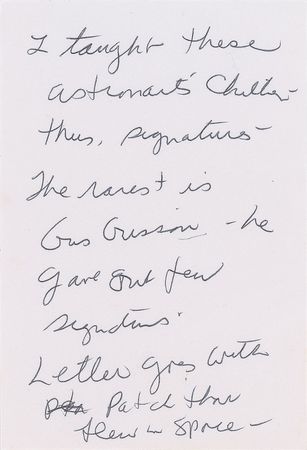 I taught these
astronauts' Children-
thus, signatures-
The rarest is
Gus Grissom - he
gave out few
signatures.
Letter goes with
Patch that
flew in space-